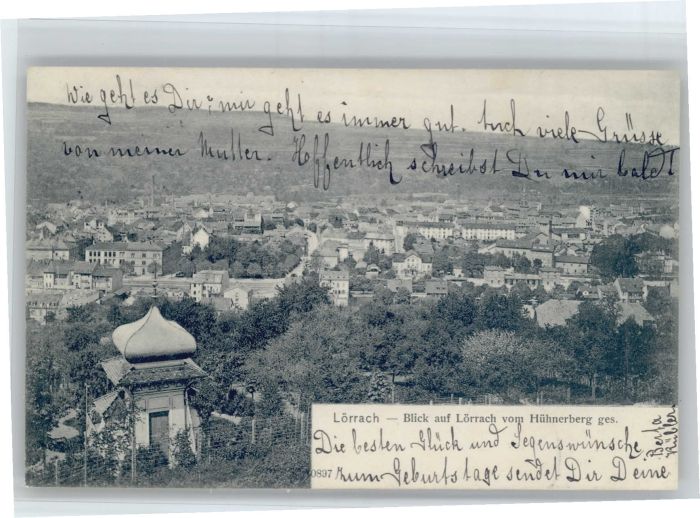 Wie geht es Dir? mir geht es immer gut. Auch viele Grüsse
von meiner Mutter. Hoffentlich schreibst Du mir bald!
Lörrach — Blick auf Lörrach vom Hühnerberg ges.
Die besten Glück und Segenswünsche
zum Geburtstage sendet Dir Deine
Berta
0897